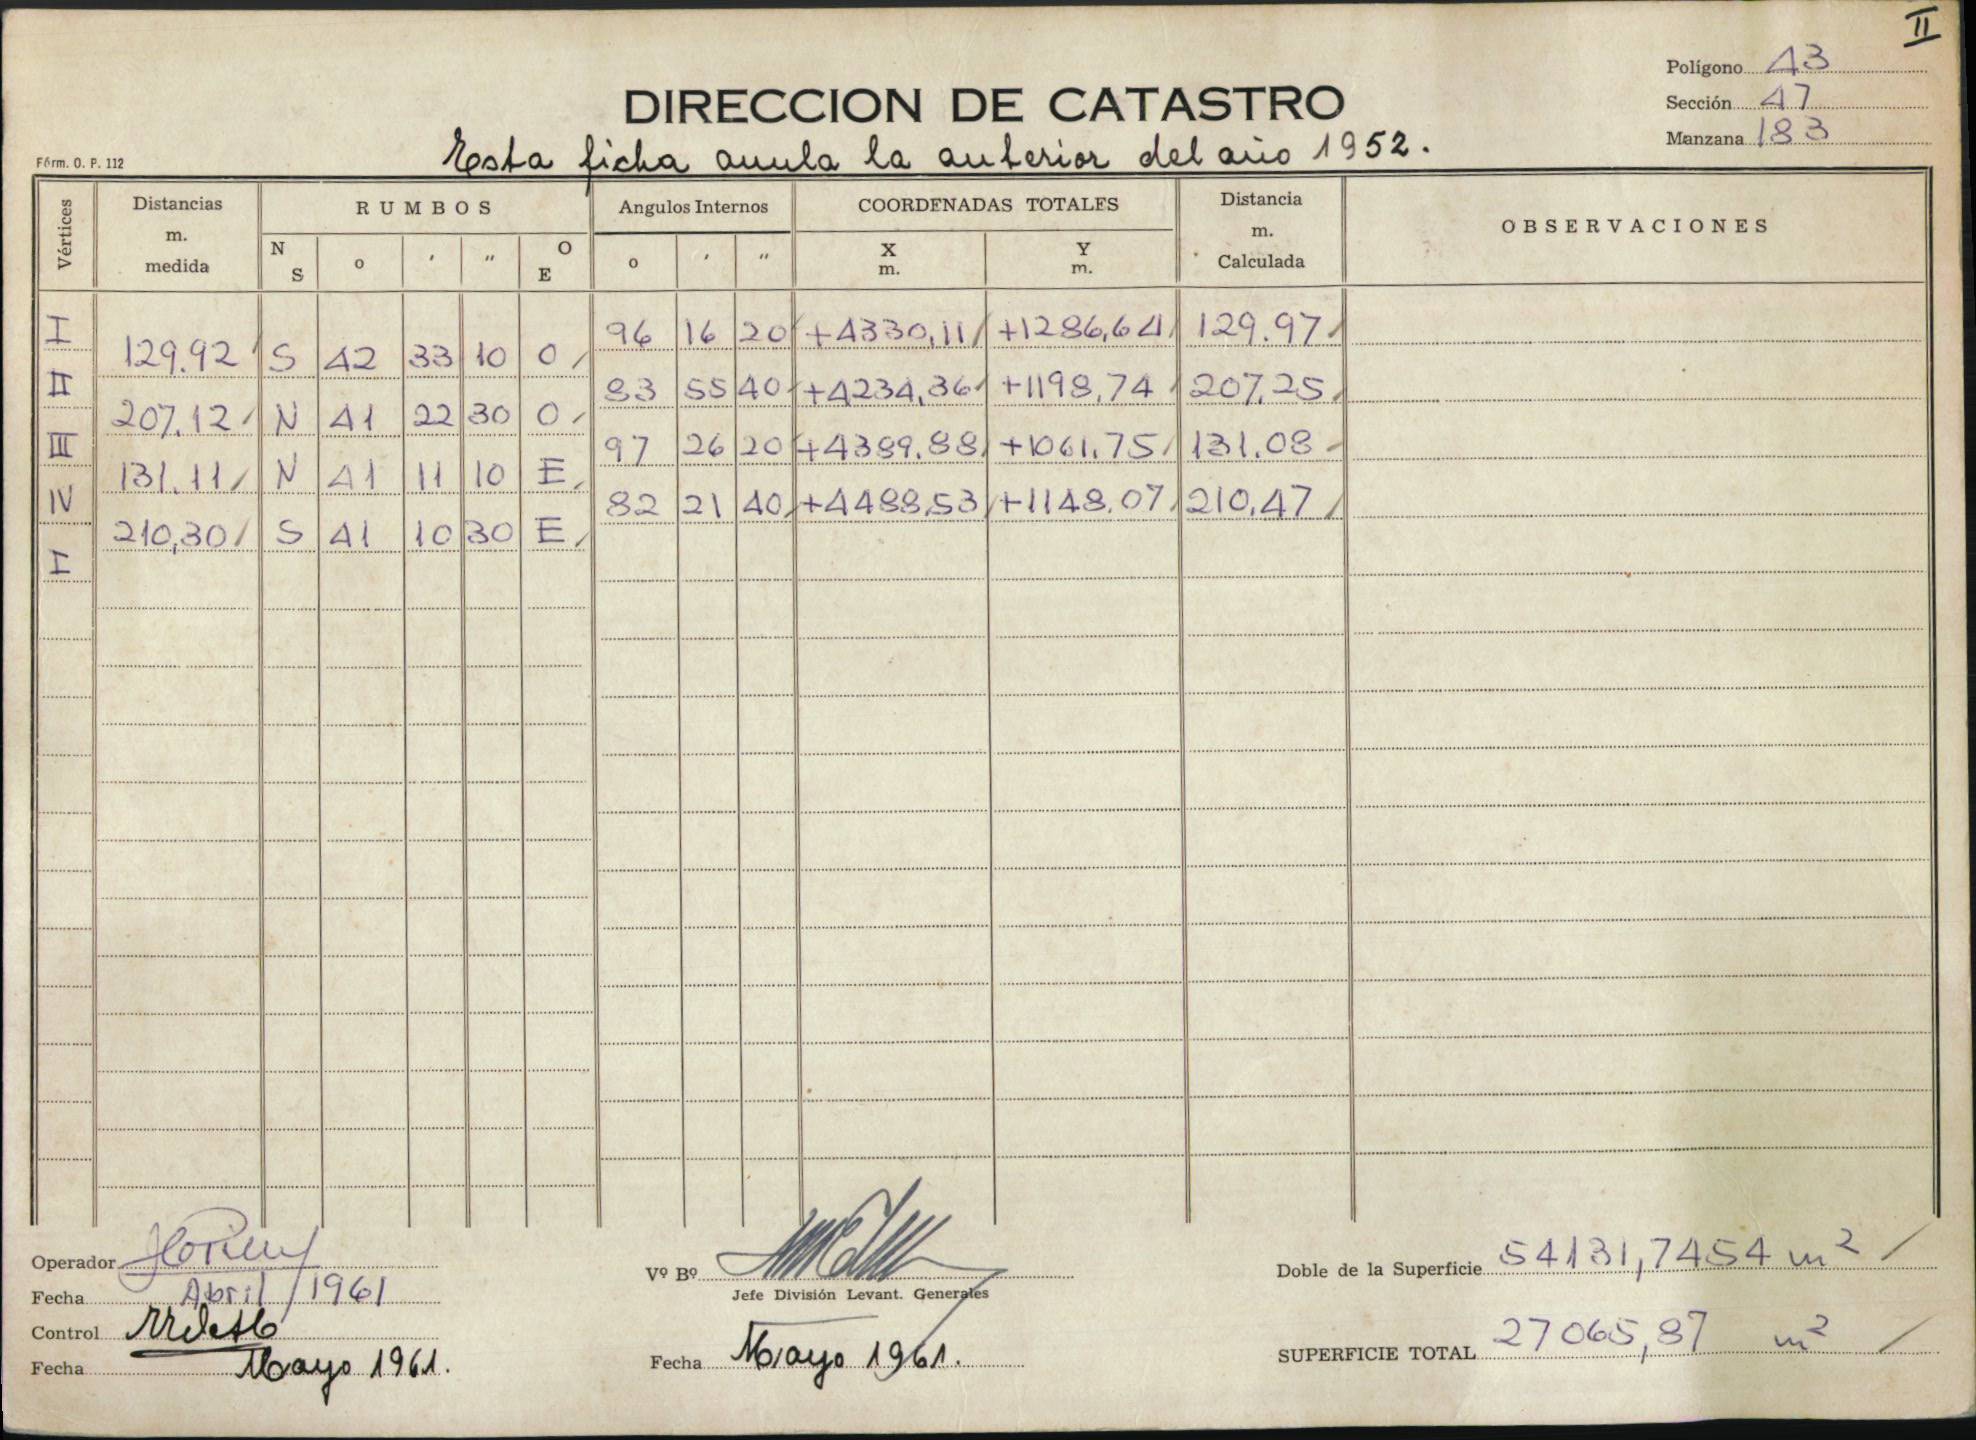 II
Polígono 43
DIRECCION DE CATASTRO
Sección 47
Manzana 183
Fórm. O. P. 112
Esta ficha anula la anterior del año 1952.
Vértices
Distancias m. medida
RUMBOS
Angulos Internos
COORDENADAS TOTALES
Distancia m. Calculada
OBSERVACIONES
N S o ' " O E o ' " X m. Y m.
I 96 16 20 +4330,11 +1286,64 129.97
129.92 S 42 33 10 O
II 83 55 40 +4234,36 +1198,74 207,25
207,12 N 41 22 30 O
III 97 26 20 +4389,88 +1061,75 131,08
131,11 N 41 11 10 E
IV 82 21 40 +4488,53 +1148,07 210,47
210,30 S 41 10 30 E
I
Operador
Fecha Abril / 1961
Control
Fecha Mayo 1961.
Vº Bº
Jefe División Levant. Generales
Fecha Mayo 1961.
Doble de la Superficie 54131,7454 m²
SUPERFICIE TOTAL 27065,87 m²